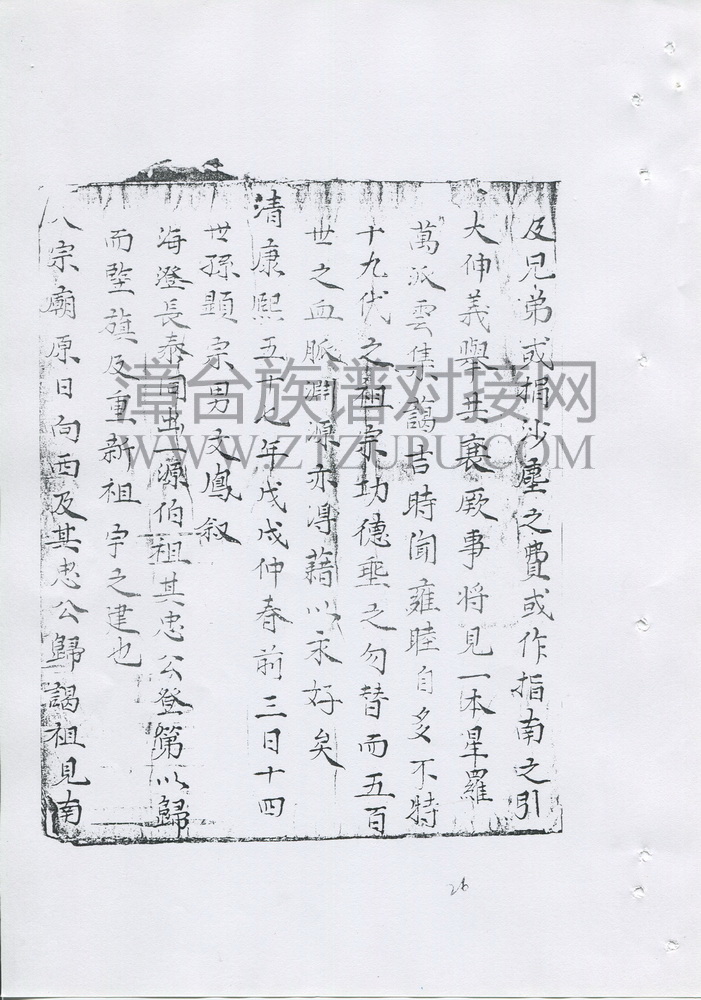 及兄弟或捐沙塵之費或作指南之引
大伸義舉共襄厥事将見一本星羅
萬派雲集謁吉時聞雍睦自多不特
十九代之祖宗功德垂之勿替而五百
世之血脈淵源亦得藉以永好矣
清康熙五十七年戊戌仲春前三日十四
世孫顯宗男文鳳叙
海澄長泰同出一源伯祖其忠公登第以歸
而竪旗及重新祖宇之建也
宗廟原日向西及其忠公歸謁祖見南
漳台族谱对接网
WWW.ZTZUPU.COM
26